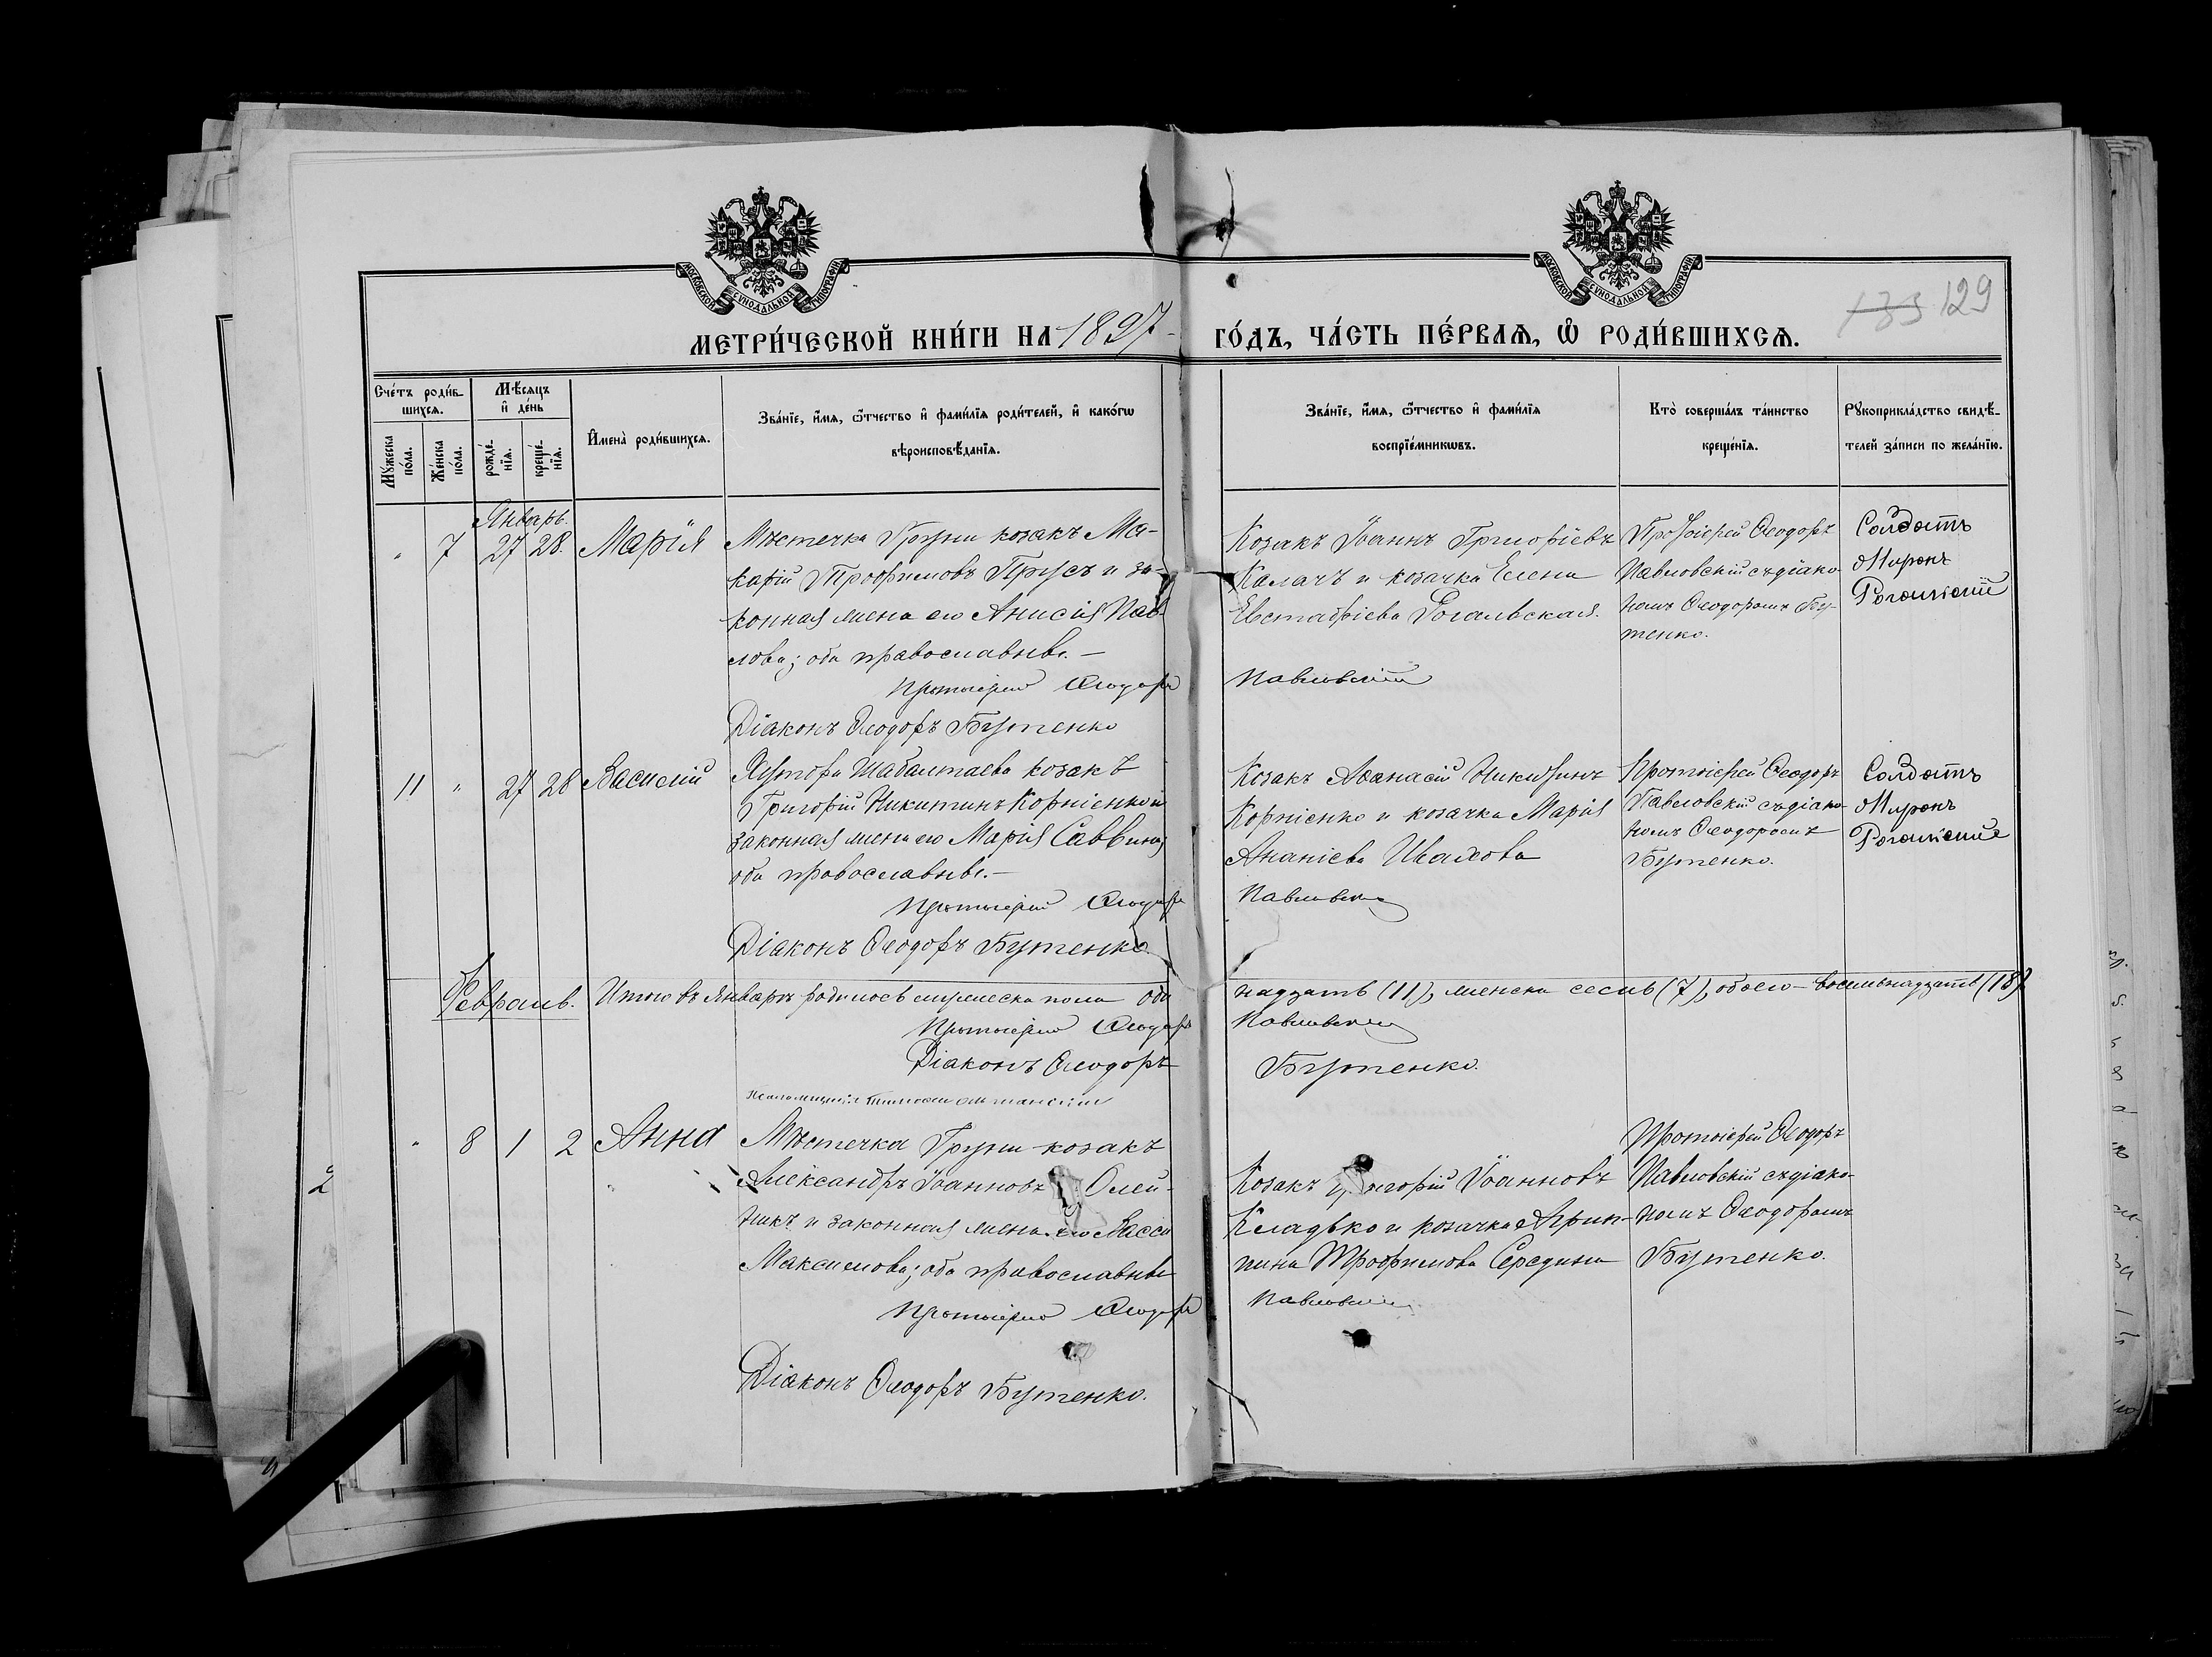 МОСКОВСКОЙ СѴНОДАЛЬНОЙ ТИПОГРАФІИ
МОСКОВСКОЙ СѴНОДАЛЬНОЙ ТИПОГРАФІИ
135 129
МЕТРИ́ЧЕСКОЙ КНИ́ГИ НА 1897 ГО́ДЪ, ЧА́СТЬ ПЕ́РВАѦ, Ѡ҆ РОДИ́ВШИХСѦ.
Сче́тъ роди́в-
шихсѧ.
Мꙋ́жеска по́ла.
Же́нска по́ла.
Мѣ́сѧцъ
и҆ де́нь
рожде́-нїѧ.
креще́-нїѧ.
И҆мена̀ роди́вшихсѧ.
Зва́нїе, и҆́мѧ, ѻ҆́тчество и҆ фами́лїѧ роди́телей, и҆ како́гѡ
вѣроисповѣ́данїѧ.
Зва́нїе, и҆́мѧ, ѻ҆́тчество и҆ фами́лїѧ
воспрїе́мникѡвъ.
Кто̀ соверша́лъ та́инство
креще́нїѧ.
Рꙋкоприкла́дство свидѣ́-
телей за́писи по жела́нїю.
Январь.
" 7 27 28. Марія
Мѣстечка Груни козакъ Ма-
карій Трофимовъ Прусъ и за-
конная жена его Анисія Пав-
лова; оба православные. —
Протоіерей Ѳеодоръ Павловскій
Діаконъ Ѳеодоръ Бутенко
Козакъ Іоаннъ Григоріевъ
Калачъ и козачка Елена
Евстафіева Рогальская.
Протоіерей Ѳеодоръ
Павловскій съ діако-
номъ Ѳеодоромъ Бу-
тенко.
Солдатъ
Миронъ
11 " 27 28 Василій
Хутора Шабалтаева козакъ
Григорій Никитинъ Корніенко и
законная жена его Марія Саввина;
оба православные. —
Протоіерей Ѳеодоръ Павловскій
Діаконъ Ѳеодоръ Бутенко.
Козакъ Аѳанасій Никитинъ
Корніенко и козачка Марія
Ананіева Ивахова
Протоіерей Ѳеодоръ
Павловскій съ діако-
номъ Ѳеодоромъ
Бутенко.
Солдатъ
Миронъ
Февраль. Итого въ Январѣ родилось мужеска пола одинадцать (11), женска семь (7), обоего — восемьнадцать (18).
Протоіерей Ѳеодоръ Павловскій
Діаконъ Ѳеодоръ Бутенко.
" 8 1 2 Анна
Мѣстечка Груни козакъ
Александръ Іоанновъ Олей-
никъ и законная жена его Васса
Максимова; оба православные
Протоіерей Ѳеодоръ Павловскій
Діаконъ Ѳеодоръ Бутенко.
Козакъ Григорій Іоанновъ
Кладько и козачка Агрип-
пина Трофимова Середина
Протоіерей Ѳеодоръ
Павловскій съ діако-
номъ Ѳеодоромъ
Бутенко.